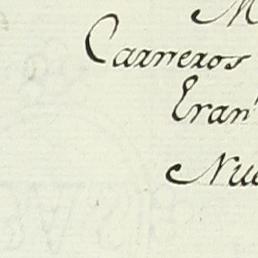 M
Carneros
Eran
Nue